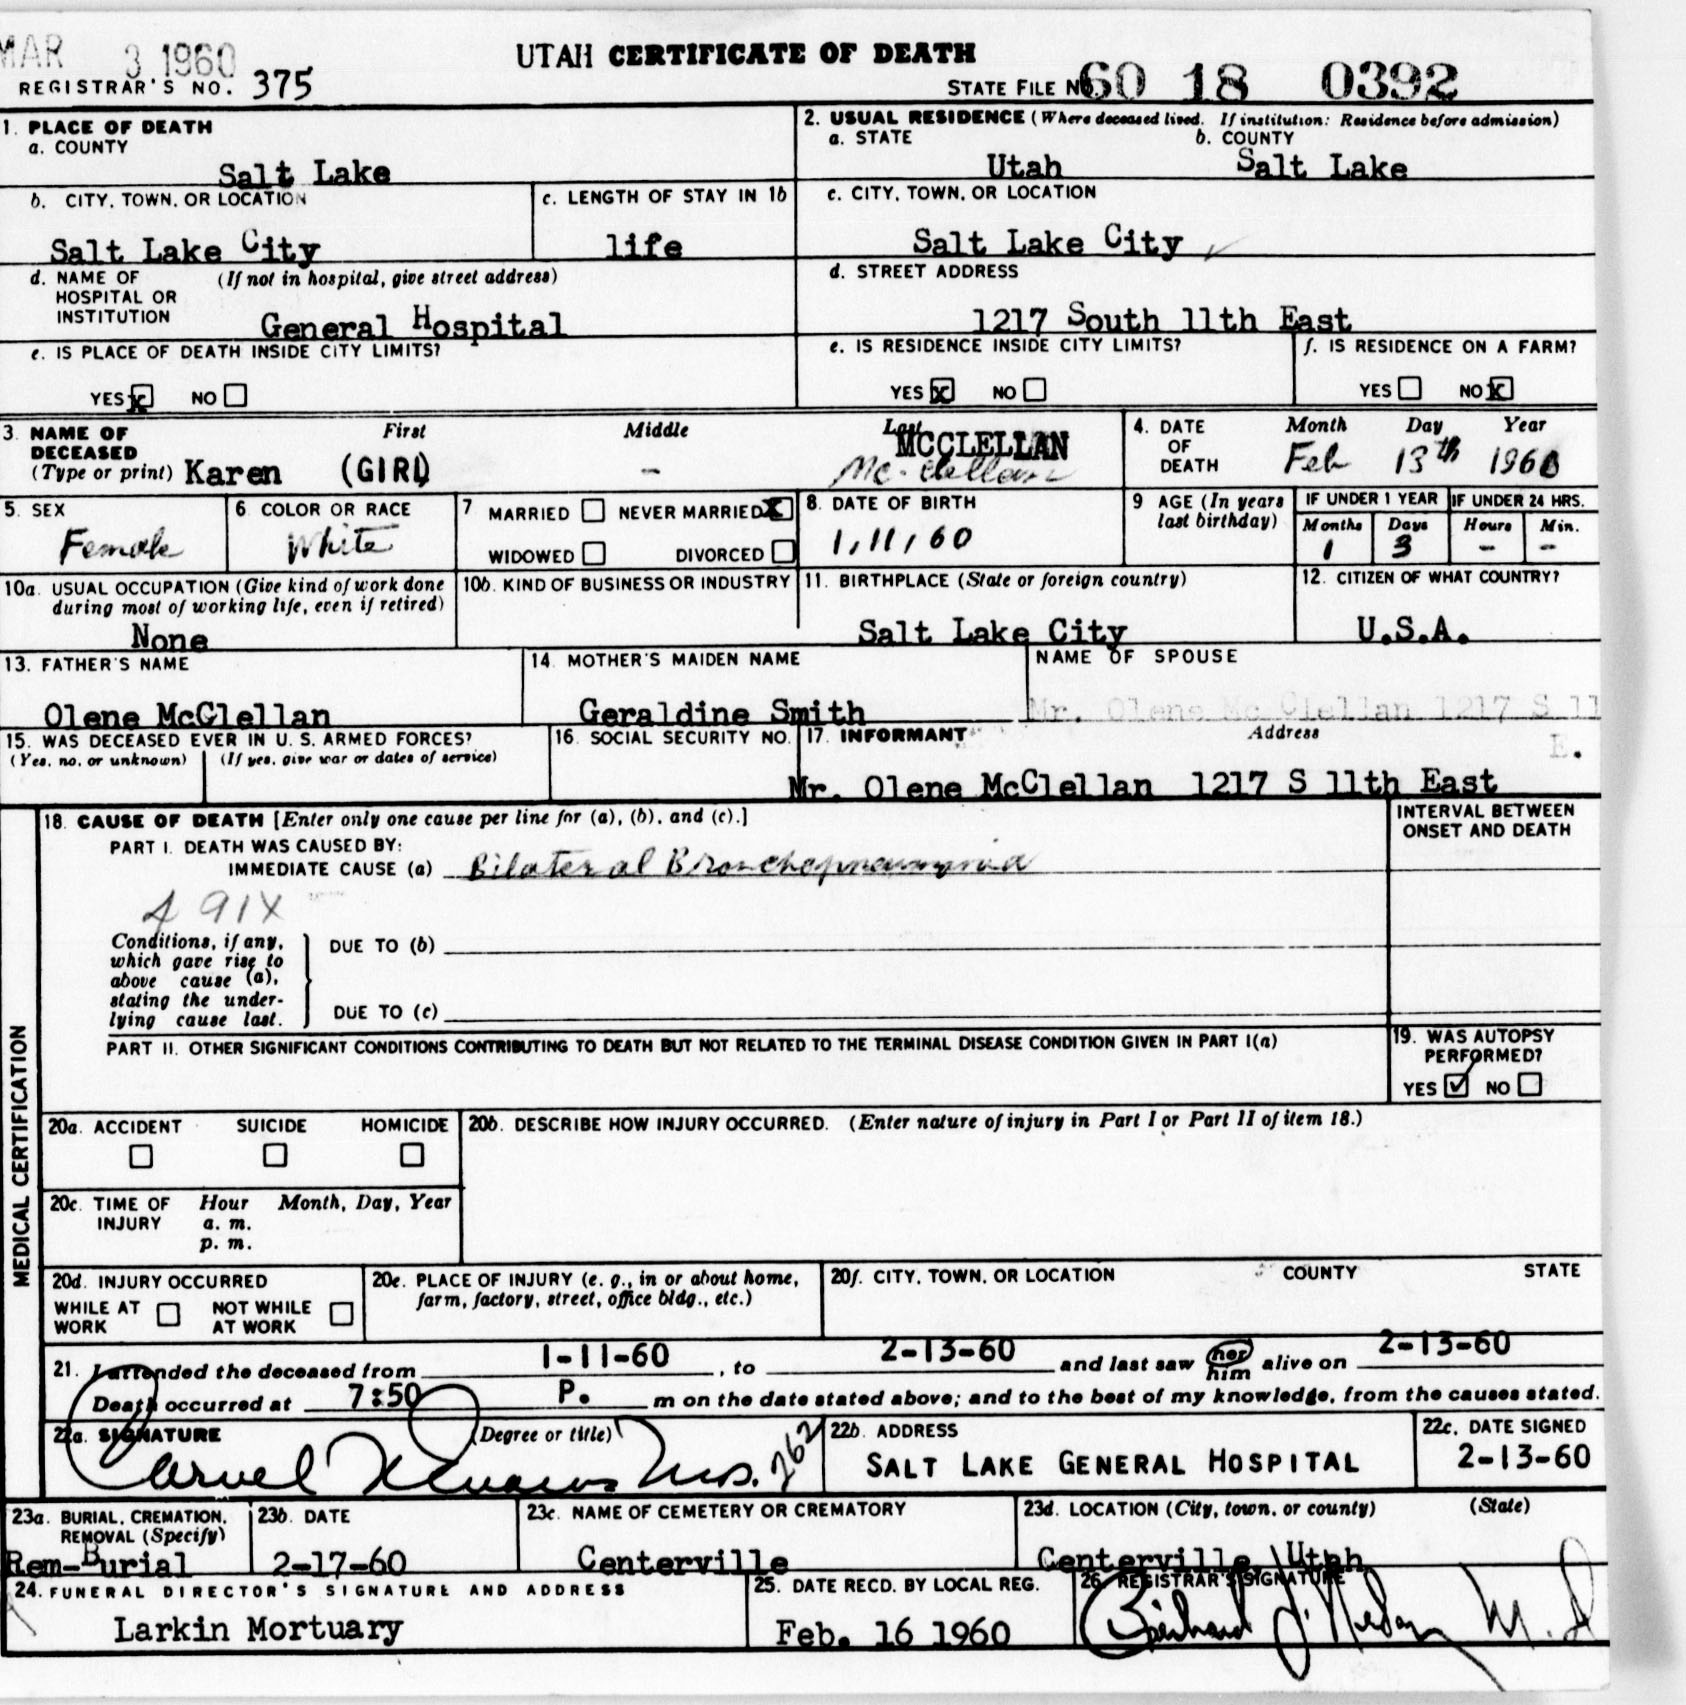 MAR 3 1960
UTAH CERTIFICATE OF DEATH
REGISTRAR'S NO. 375
STATE FILE NO. 60 18 0392
1. PLACE OF DEATH
a. COUNTY
Salt Lake
2. USUAL RESIDENCE (Where deceased lived. If institution: Residence before admission)
a. STATE b. COUNTY
Utah Salt Lake
b. CITY, TOWN, OR LOCATION
Salt Lake City
c. LENGTH OF STAY IN 1b
life
c. CITY, TOWN, OR LOCATION
Salt Lake City
d. NAME OF (If not in hospital, give street address)
HOSPITAL OR
INSTITUTION
General Hospital
d. STREET ADDRESS
1217 South 11th East
e. IS PLACE OF DEATH INSIDE CITY LIMITS?
YES X NO
e. IS RESIDENCE INSIDE CITY LIMITS?
YES X NO
f. IS RESIDENCE ON A FARM?
YES NO X
3. NAME OF First Middle Last
DECEASED MCCLELLAN
(Type or print) Karen (GIRL) - Mc-Clellan
4. DATE Month Day Year
OF
DEATH Feb 13th 1960
5. SEX
Female
6. COLOR OR RACE
White
7 MARRIED NEVER MARRIED X
WIDOWED DIVORCED
8. DATE OF BIRTH
1,11,60
9 AGE (In years
last birthday)
IF UNDER 1 YEAR IF UNDER 24 HRS.
Months Days Hours Min.
1 3 - -
10a. USUAL OCCUPATION (Give kind of work done
during most of working life, even if retired)
None
10b. KIND OF BUSINESS OR INDUSTRY
11. BIRTHPLACE (State or foreign country)
Salt Lake City
12. CITIZEN OF WHAT COUNTRY?
U.S.A.
13. FATHER'S NAME
Olene McClellan
14. MOTHER'S MAIDEN NAME
Geraldine Smith
NAME OF SPOUSE
Mr. Olene Mc Clellan 1217 S 11
E.
15. WAS DECEASED EVER IN U. S. ARMED FORCES?
(Yes, no, or unknown) (If yes, give war or dates of service)
16. SOCIAL SECURITY NO.
17. INFORMANT Address
Mr. Olene McClellan 1217 S 11th East
MEDICAL CERTIFICATION
18. CAUSE OF DEATH [Enter only one cause per line for (a), (b), and (c).]
INTERVAL BETWEEN
ONSET AND DEATH
PART I. DEATH WAS CAUSED BY:
IMMEDIATE CAUSE (a) Bilateral Bronchopneumonia
491X
Conditions, if any,
which gave rise to
above cause (a),
stating the under-
lying cause last.
DUE TO (b)
DUE TO (c)
PART II. OTHER SIGNIFICANT CONDITIONS CONTRIBUTING TO DEATH BUT NOT RELATED TO THE TERMINAL DISEASE CONDITION GIVEN IN PART I(a)
19. WAS AUTOPSY
PERFORMED?
YES ✓ NO
20a. ACCIDENT SUICIDE HOMICIDE
20b. DESCRIBE HOW INJURY OCCURRED. (Enter nature of injury in Part I or Part II of item 18.)
20c. TIME OF Hour Month, Day, Year
INJURY a. m.
p. m.
20d. INJURY OCCURRED
WHILE AT NOT WHILE
WORK AT WORK
20e. PLACE OF INJURY (e. g., in or about home,
farm, factory, street, office bldg., etc.)
20f. CITY, TOWN, OR LOCATION COUNTY STATE
21. I attended the deceased from 1-11-60, to 2-13-60 and last saw her him alive on 2-13-60
Death occurred at 7:50 P. m on the date stated above; and to the best of my knowledge, from the causes stated.
22a. SIGNATURE (Degree or title)
262
22b. ADDRESS
SALT LAKE GENERAL HOSPITAL
22c. DATE SIGNED
2-13-60
23a. BURIAL, CREMATION,
REMOVAL (Specify)
Rem-Burial
23b. DATE
2-17-60
23c. NAME OF CEMETERY OR CREMATORY
Centerville
23d. LOCATION (City, town, or county) (State)
Centerville, Utah
24. FUNERAL DIRECTOR'S SIGNATURE AND ADDRESS
Larkin Mortuary
25. DATE RECD. BY LOCAL REG.
Feb. 16 1960
26. REGISTRAR'S SIGNATURE
M.D